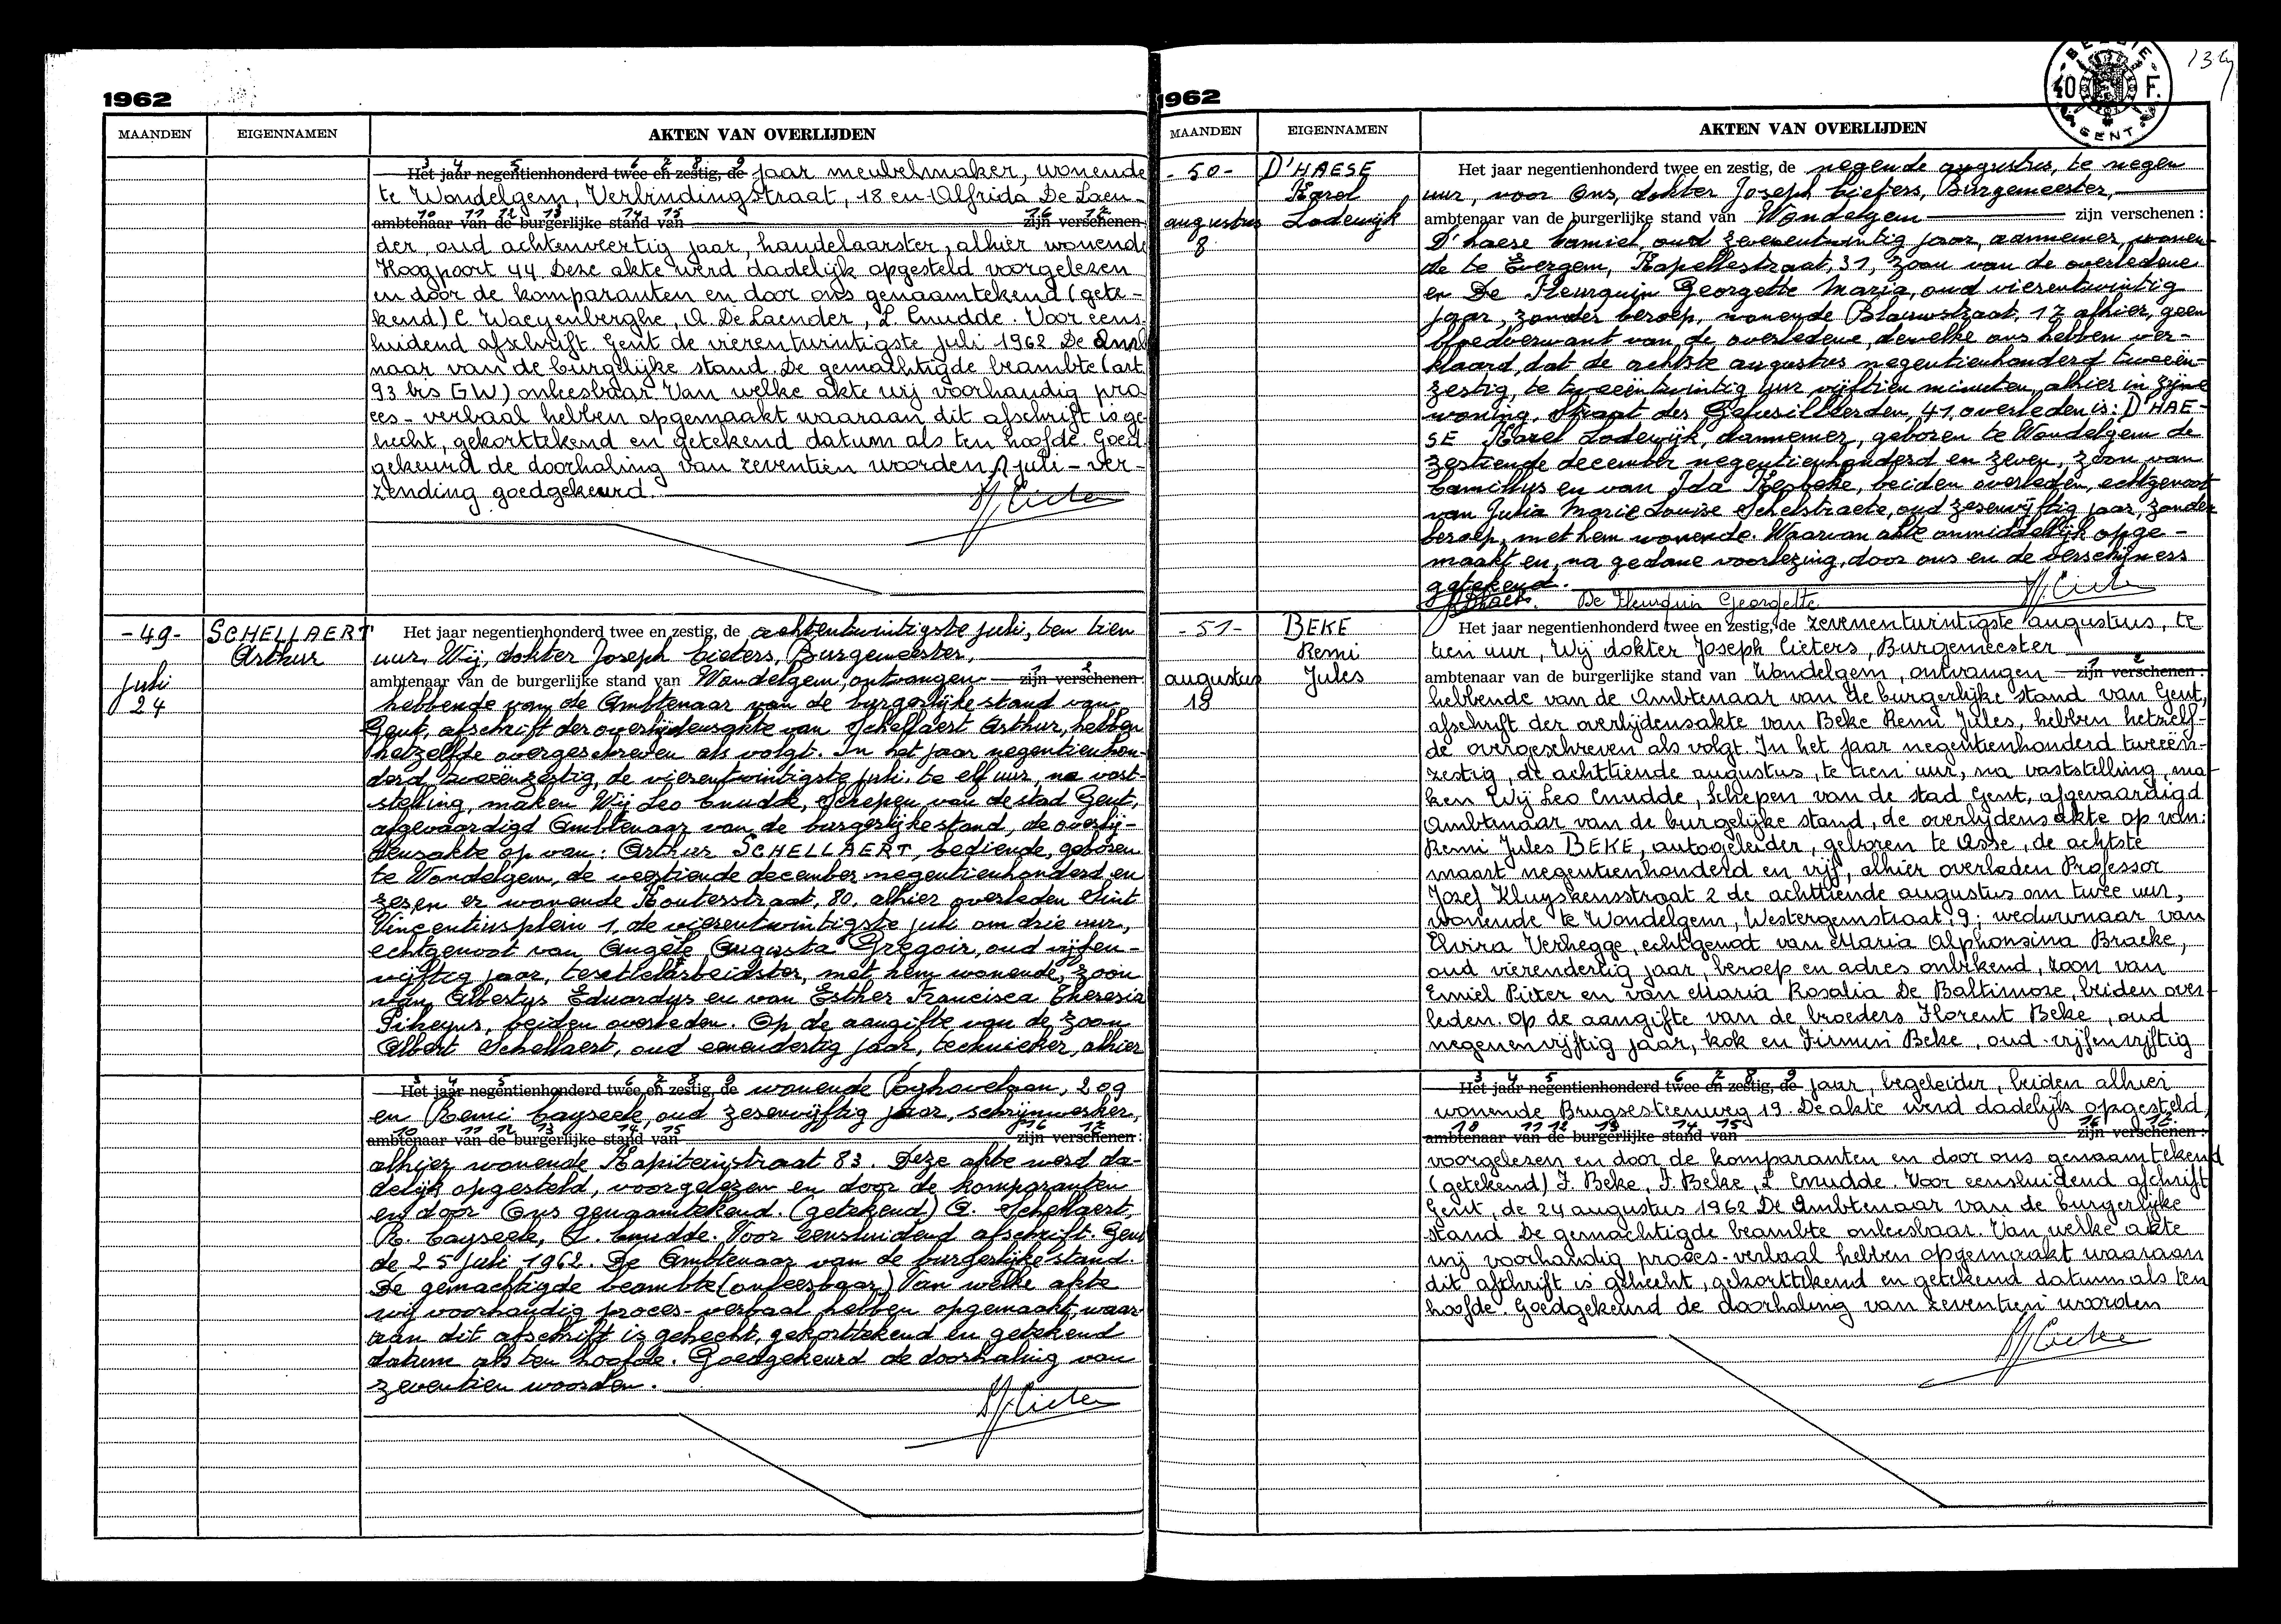 1962
MAANDEN EIGENNAMEN AKTEN VAN OVERLIJDEN
Het jaar negentienhonderd twee en zestig, de jaar meubelmaker, wonende
te Wondelgem, Verbindingstraat, 18 en Alfrida De Laen-
ambtenaar van de burgerlijke stand van zijn verschenen
der, oud achtenveertig jaar, handelaarster, alhier wonende
Hoogpoort 44. Deze akte werd dadelijk opgesteld voorgelezen
en door de komparanten en door ons genaamtekend (gete-
kend) C. Waeyenberghe, A. De Laender, L. Cnudde. Voor eens
luidend afschrift. Gent de vierentwintigste juli 1962 De Amb
naar van de burgelijke stand. De gemachtigde beambte (art.
93 bis GW) onleesbaar. Van welke akte wij voorhandig pro
ces-verbaal hebben opgemaakt waaraan dit afschrift is ge
hecht, gekorttekend en getekend datum als ten hoofde. Goed
gekeurd de doorhaling van zeventien woorden juli - ver-
zending goedgekeurd.
-49- SCHELLAERT Arthur
Juli 24
Het jaar negentienhonderd twee en zestig, de achtentwintigste juli, ten tien
uur, Wij, dokter Joseph Cieters, Burgemeester,
ambtenaar van de burgerlijke stand van Wondelgem, ontvangen zijn verschenen
hebbende van de Ambtenaar van de burgerlijke stand van
Gent, afschrift der overlijdensakte van Schellaert Arthur, hebben
hetzelfde overgeschreven als volgt. In het jaar negentienhon-
derd tweeënzestig, de vierentwintigste juli, te elf uur, na vast-
stelling, maken Wij Leo Cnudde, Schepen van de stad Gent,
afgevaardigd Ambtenaar van de burgerlijke stand, de overlij-
densakte op van: Arthur SCHELLAERT, bediende, geboren
te Wondelgem, de veertiende december negentienhonderd en
zes, en er wonende Kouterstraat, 80, alhier overleden Sint
Vincentiusplein 1, de vierentwintigste juli om drie uur,
echtgenoot van Angèle Augusta Gregoir, oud vijfen-
vijftig jaar, textielarbeidster, met hem wonende, zoon
van Albertus Eduardus en van Esther Francisca Theresia
beiden overleden. Op de aangifte van de zoon
Albert Schellaert, oud eenendertig jaar, technieker, alhier
Het jaar negentienhonderd twee en zestig, de wonende 209
en Remi Cayseele, oud zesenvijftig jaar, schrijnwerker,
ambtenaar van de burgerlijke stand van zijn verschenen:
alhier wonende Kapiteinstraat 83. Deze akte werd da-
delijk opgesteld, voorgelezen en door de komparanten
en door Ons genaamtekend. (getekend) A. Schellaert
R. Cayseele, L. Cnudde. Voor eensluidend afschrift. Gent
de 25 juli 1962. De Ambtenaar van de burgerlijke stand.
De gemachtigde beambte (onleesbaar) Van welke akte
wij voorhandig proces-verbaal hebben opgemaakt, waar
aan dit afschrift is gehecht, gekorttekend en getekend
datum als ten hoofde. Goedgekeurd de doorhaling van
zeventien woorden.
1962
BELGIE 40 F. GENT
MAANDEN EIGENNAMEN AKTEN VAN OVERLIJDEN
-50- D'HAESE Karel Lodewijk
augustus 8
Het jaar negentienhonderd twee en zestig, de negende augustus, te negen
uur, voor Ons, dokter Joseph Cieters, Burgemeester,
ambtenaar van de burgerlijke stand van Wondelgem zijn verschenen:
D'haese Camiel, oud zevenentwintig jaar, aannemer, wonen-
de te Evergem, Kapellestraat, 31, zoon van de overledene
en De Fleurquin Georgette Maria, oud vierentwintig
jaar, zonder beroep, wonende Blauwstraat, 17 alhier, geen
bloedverwant van de overledene, dewelke ons hebben ver-
klaard, dat de achtste augustus negentienhonderd tweeën-
zestig, te tweeëntwintig uur vijftien minuten, alhier in zijne
woning, Straat der Gefusilleerden, 41, overleden is: D'HAE-
SE Karel Lodewijk, aannemer, geboren te Wondelgem de
zestiende december negentienhonderd en zeven, zoon van
Camillus en van Ida beiden overleden, echtgenoot
van Julia Marie Louise Schelstraete, oud zesenvijftig jaar, zonder
beroep, met hem wonende. Waarvan akte onmiddellijk opge-
maakt en, na gedane voorlezing, door ons en de verschijners
getekend.
De Fleurquin Georgette
-51- BEKE Remi Jules
augustus 18
Het jaar negentienhonderd twee en zestig, de zevenentwintigste augustus, te
tien uur, Wij dokter Joseph Cieters, Burgemeester
ambtenaar van de burgerlijke stand van Wondelgem, ontvangen zijn verschenen:
hebbende van de Ambtenaar van de burgerlijke stand van Gent,
afschrift der overlijdensakte van Beke Remi Jules, hebben hetzelf-
de overgeschreven als volgt. In het jaar negentienhonderd tweeën-
zestig, de achttiende augustus, te tien uur, na vaststelling, ma-
ken Wij Leo Cnudde, Schepen van de stad Gent, afgevaardigd
Ambtenaar van de burgelijke stand, de overlijdensakte op van:
Remi Jules BEKE, autogeleider, geboren te Asse, de achtste
maart negentienhonderd en vijf, alhier overleden Professor
Jozef Kluyskensstraat 2 de achttiende augustus om twee uur,
wonende te Wondelgem, Westergemstraat 9; weduwnaar van
Elvira Verhegge, echtgenoot van Maria Alphonsina Braeke,
oud vierendertig jaar, beroep en adres onbekend, zoon van
Emiel Pieter en van Maria Rosalia De Baltimore, beiden over-
leden. Op de aangifte van de broeders Florent Beke, oud
negenenvijftig jaar, kok en Firmin Beke, oud vijfenvijftig
Het jaar negentienhonderd twee en zestig, de jaar, begeleider, beiden alhier
wonende Brugsesteenweg 19. De akte werd dadelijk opgesteld,
ambtenaar van de burgerlijke stand van zijn verschenen:
voorgelezen en door de komparanten en door ons genaamtekend
(getekend) F. Beke, F. Beke, L. Cnudde. Voor eensluidend afschrift
Gent, de 24 augustus 1962 De Ambtenaar van de burgerlijke
stand De gemachtigde beambte onleesbaar. Van welke akte
wij voorhandig proces-verbaal hebben opgemaakt waaraan
dit afschrift is gehecht, gekorttekend en getekend datum als ten
hoofde. Goedgekeurd de doorhaling van zeventien woorden